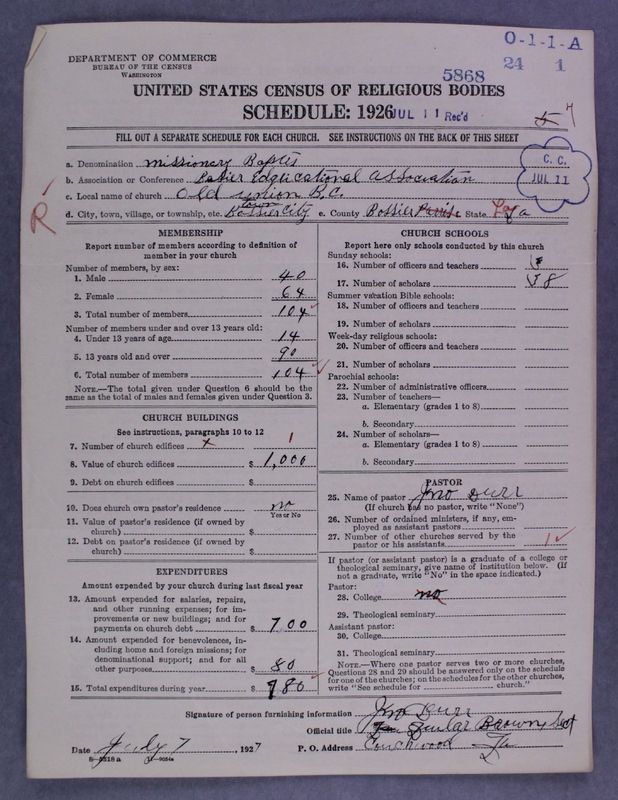 O-1-1-A
DEPARTMENT OF COMMERCE
BUREAU OF THE CENSUS
WASHINGTON
5868
24 1
UNITED STATES CENSUS OF RELIGIOUS BODIES
SCHEDULE: 1926
JUL 11 Rec'd
FILL OUT A SEPARATE SCHEDULE FOR EACH CHURCH. SEE INSTRUCTIONS ON THE BACK OF THIS SHEET
a. Denomination Missionary Baptis
C. C.
JUL 11
b. Association or Conference Bossier Educational Association
c. Local name of church Old Union B.C.
R
d. City, town, village, or township, etc. Bossier City town e. County Bossier Parish State La
MEMBERSHIP
Report number of members according to definition of
member in your church
Number of members, by sex:
1. Male 40
2. Female 64
3. Total number of members 104
Number of members under and over 13 years old:
4. Under 13 years of age 14
5. 13 years old and over 90
6. Total number of members 104
NOTE.—The total given under Question 6 should be the
same as the total of males and females given under Question 3.
CHURCH BUILDINGS
See instructions, paragraphs 10 to 12
7. Number of church edifices x 1
8. Value of church edifices $ 1,000
9. Debt on church edifices $
10. Does church own pastor's residence no
Yes or No
11. Value of pastor's residence (if owned by
church) $
12. Debt on pastor's residence (if owned by
church) $
EXPENDITURES
Amount expended by your church during last fiscal year
13. Amount expended for salaries, repairs,
and other running expenses; for im-
provements or new buildings; and for
payments on church debt $ 700
14. Amount expended for benevolences, in-
cluding home and foreign missions; for
denominational support; and for all
other purposes $ 80
15. Total expenditures during year $ 780
CHURCH SCHOOLS
Report here only schools conducted by this church
Sunday schools:
16. Number of officers and teachers
17. Number of scholars 58
Summer vacation Bible schools:
18. Number of officers and teachers
19. Number of scholars
Week-day religious schools:
20. Number of officers and teachers
21. Number of scholars
Parochial schools:
22. Number of administrative officers
23. Number of teachers—
a. Elementary (grades 1 to 8)
b. Secondary
24. Number of scholars—
a. Elementary (grades 1 to 8)
b. Secondary
PASTOR
25. Name of pastor Jno Durr
(If church has no pastor, write "None")
26. Number of ordained ministers, if any, em-
ployed as assistant pastors
27. Number of other churches served by the
pastor or his assistants 1
If pastor (or assistant pastor) is a graduate of a college or
theological seminary, give name of institution below. (If
not a graduate, write "No" in the space indicated.)
Pastor:
28. College no
29. Theological seminary
Assistant pastor:
30. College
31. Theological seminary
NOTE.—Where one pastor serves two or more churches,
Questions 28 and 29 should be answered only on the schedule
for one of the churches; on the schedules for the other churches,
write "See schedule for church."
Signature of person furnishing information Jno Durr
Official title Brown Sect
Date July 7, 1927 P. O. Address Couchwood La
8—5318a 11—9054a